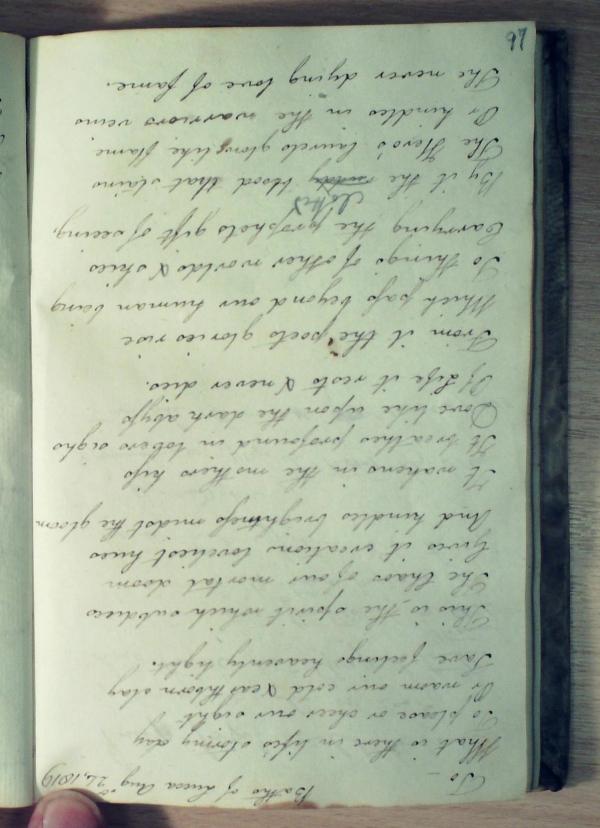 To — Baths of Lucca Aug 1819
What is there in lifes stormy day
To please or cheer our sight
Or warm our cold & earthborn clay
Save feelings heavenly light.
This is the spirit which subdues
The chaos of our mortal doom
Gives it creations loveliest hues
And kindles brightness midst the gloom
It wakens in the mothers kiss
It breathes profound in lovers sighs
Dove like upon the dark abyss
Of Life it rests & never dies.
From it the poets glories rise
Which pass beyond our human being
To things of other worlds & skies
Carrying the prophets gift of seeing,
By it the ruddy blood that stains
The Hero's laurels glows like flame
Or kindles in the warriors veins
The never dying love of fame.
97